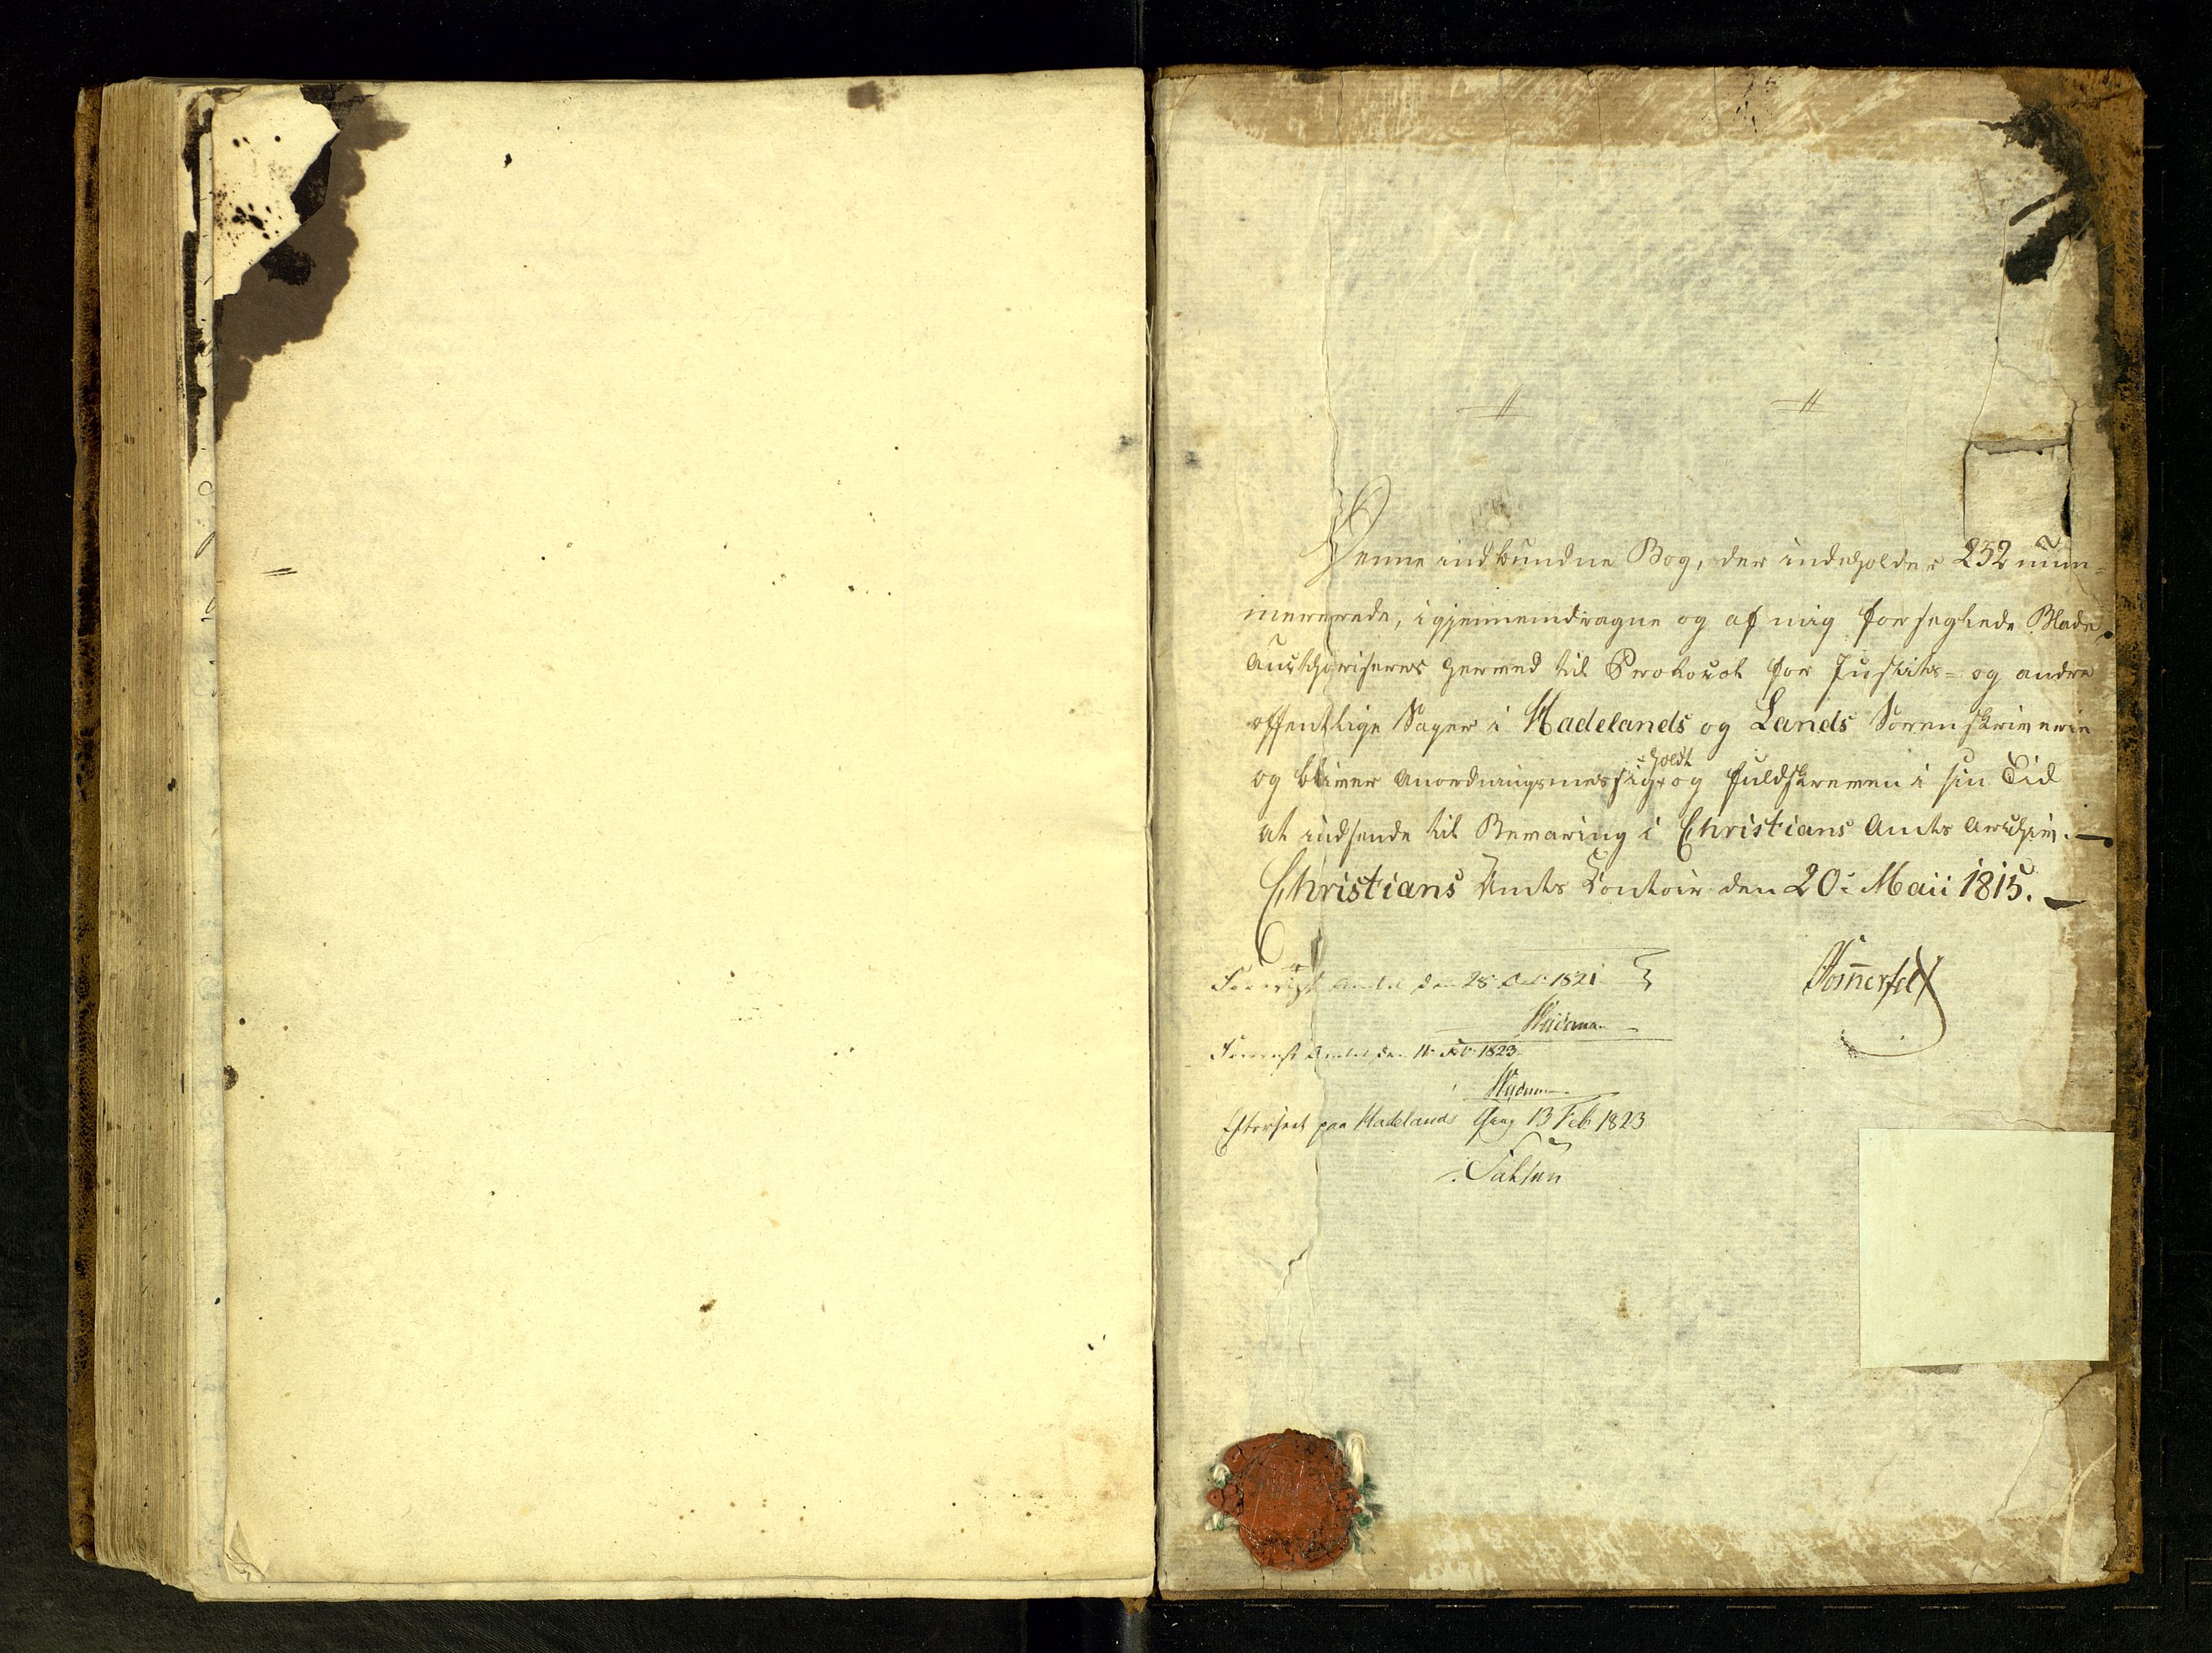 Denne indbundne Bog, der indeholder 252 num-
mererede, igjennemdragne og af mig forseglede Blade,
Authoriseres hermed til Protocol for Justits- og andre
offentlige Sager i Hadelands og Lands Sorenskriverie
og bliver Anordningsmessig holdt og fuldskreven i sin Tid
at indsende til Bevaring i Christians Amts Archiv. —
Christians Amts Contoir den 20: Maii 1815. —
Sommerfeldt
Foreviist Amtet den 28: 1821
Foreviist Amtet den 11: Feb: 1823
Efterseet paa Hadelands 13 Feb 1823